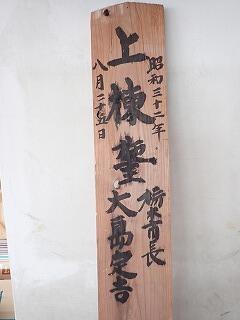 昭和三十二年
八月二十五日
上棟聖
栃木市長
大島定吉